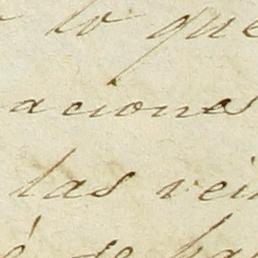 lo que
aciones
las vei
é de ha